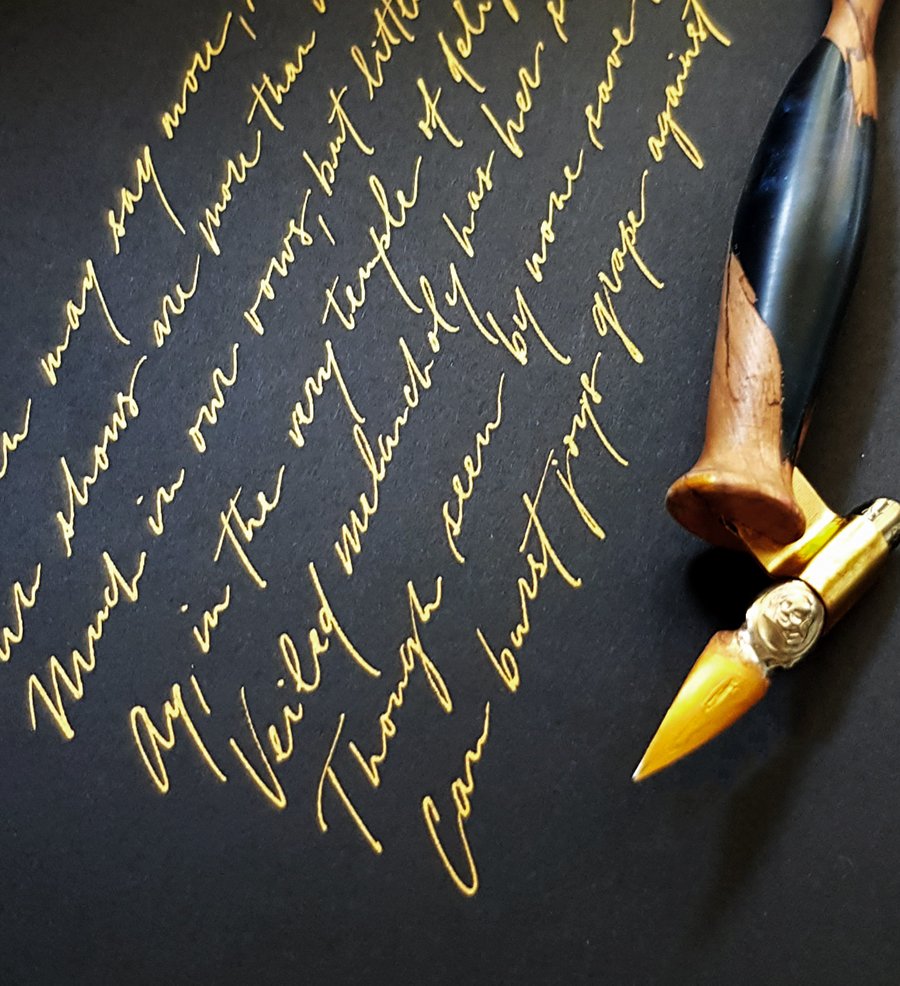 may say more,
shows are more than
Much in our vows, but little
Ay, in the very temple of delig
Veiled melancholy has her s
Though seen by none save
Can burst joys grape against